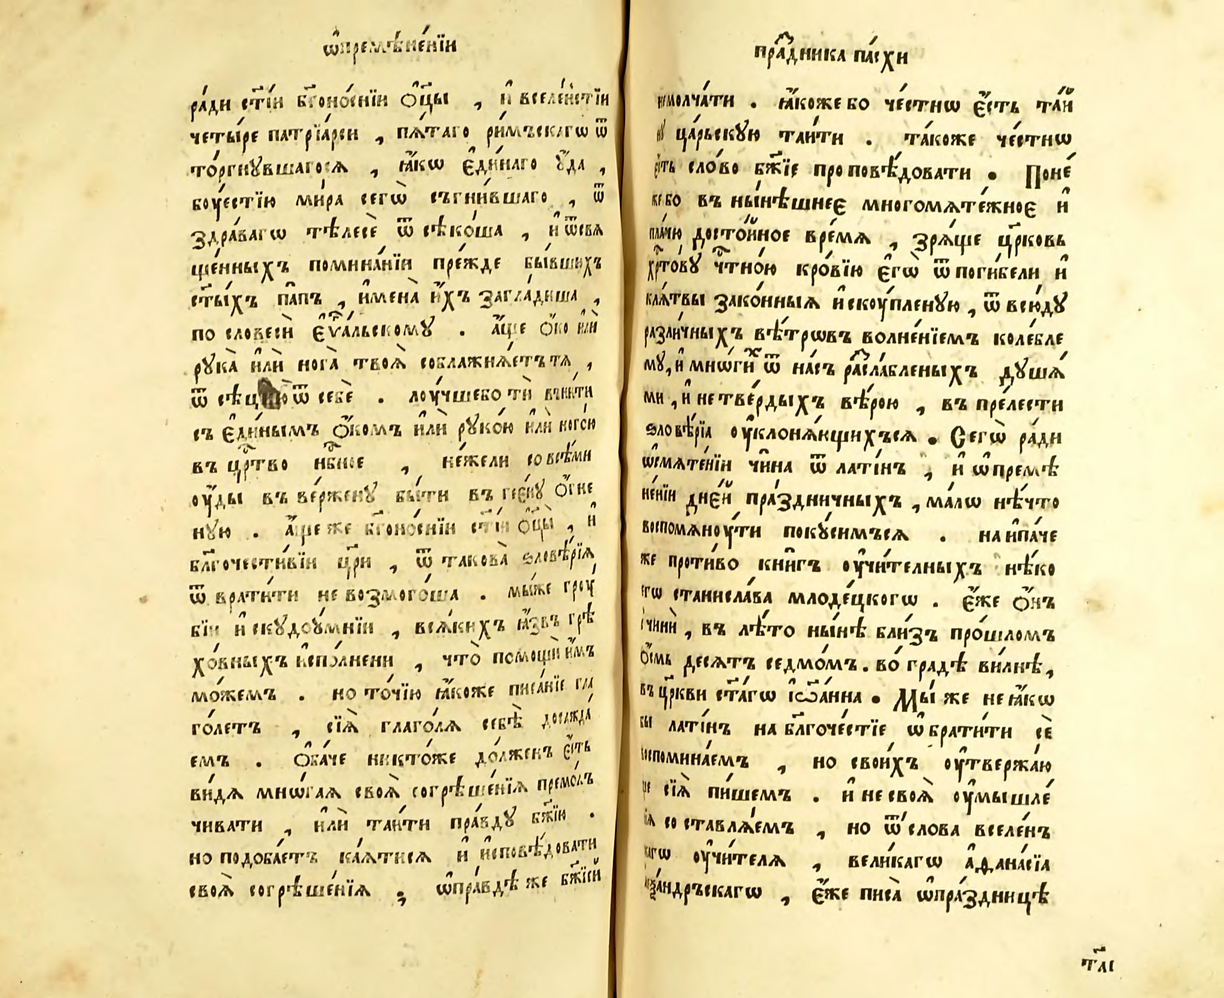 ѡ҆премѣне́нїи
ра́ди ст҃і́и бг҃оно́снїи ѻ҆ц҃ы , и҆ вселе́нстїи
четы́ре патрїа́рси , пѧ́таго ри́мъскагѡ ѿ
то́ргнꙋвшагосѧ , ꙗ҆́кѡ є҆ди́наго ᲂу҆́да ,
боуе́стїю ми́ра сегѡ̀ съгни́вшаго , ѿ
здра́вагѡ тѣлесѐ ѿ сѣко́ша , и҆ ѿсвѧ
ще́нныхъ помина́нїи пре́жде бы́вшихъ
ст҃ы́хъ па́пъ , и҆мена̀ и҆́хъ загла́диша ,
по словесѝ є҆ѵⷢ҇альскому . а҆́ще ѻ҆́ко и҆лѝ
рука̀ и҆лѝ нога̀ твоѧ̀ соблажнѧ́етъ тѧ ,
ѿ сѣцы̀ ю ѿ себѐ . лоу́чшебо тѝ вни́ти
съ є҆ди́нымъ ѻ҆́комъ и҆лѝ руко́ю и҆лѝ ного́ю
въ црⷭ҇тво нбⷭ҇ное , не́жели совсѣ́ми
оу҆́ды въ ве́ржену бы́ти въ гее́ну ѻ҆́гне
ную . а҆́ще же бг҃оно́снїи ст҃і́и ѻ҆ц҃ы , и҆
бл҃гочести́вїи цр҃и , ѿ такова̀ ѕловѣ́рїѧ
ѿ врати́ти не возмого́ша . мы́же гроу́
бїи и҆ скудоу́мнїи , всѧ́кихъ ꙗ҆́звъ грѣ
хо́вныхъ и҆спо́лнени , что̀ помощѝ и҆́мъ
мо́жемъ . но то́чїю ꙗ҆́коже писа́нїе гла
го́летъ , сїѧ̀ глаго́лѧ себѣ̀ досажда́
емъ . ѻ҆ба́че никто́же до́лженъ є҆́сть
ви́дѧ мнѡ́гаѧ своѧ̀ согрѣше́нїѧ премол
чивати , и҆лѝ таи́ти пра́вду бж҃їю .
но подоба́етъ ка́ѧтисѧ и҆ и҆сповѣ́довати
своѧ̀ согрѣше́нїѧ , ѡ҆пра́вдѣ же бж҃їей
пра́здника па́схи
немолча́ти . ꙗ҆́коже бо че́стнѡ є҆́сть та́й
ну ца́рьскую таи́ти . та́коже че́стнѡ
є҆́сть сло́во бж҃їе проповѣ́довати . Поне́
же бо въ ны́нѣшнее многомѧте́жное и҆
пла́чю досто́йное вре́мѧ , зрѧ́ще цр҃ковь
хрⷭ҇то́ву чⷭ҇тно́ю кро́вїю є҆гѡ̀ ѿ поги́бели и҆
клѧ́твы зако́нныѧ и҆скоу́пленую , ѿ всю́ду
разли́чныхъ вѣ́трѡвъ волне́нїемъ коле́бле
му, и҆ мнѡ́гихъ ѿ на́съ разсла́бленыхъ душа́
ми , и҆ нетве́рдыхъ вѣ́рою , въ пре́лести
ѕловѣ́рїа оу҆клонѧ́ющихъсѧ . Сегѡ̀ ра́ди
ѡ҆смѧте́нїи чи́на ѿ лати́нъ , и҆ ѡ҆премѣ
не́нїи дне́й пра́здничныхъ , ма́лѡ нѣ́что
воспомѧноу́ти поку́симъсѧ . наипа́че
же проти́во кни́гъ оу҆чи́телныхъ нѣ́ко
егѡ станисла́ва младе́цкогѡ . є҆́же ѻ҆́нъ
, въ лѣ́то ны́нѣ бли́зъ про́шломъ
ѻ҆́смь десѧ́тъ седмо́мъ . во́ градѣ ви́лнѣ ,
въ цр҃кви ст҃а́гѡ і҆ѡа́нна . Мы́ же не ꙗ҆́кѡ
бы лати́нъ на бл҃гоче́стїе ѡ҆брати́ти сѐ
воспомина́емъ , но свои́хъ оу҆твержа́ю
ще сїѧ̀ пи́шемъ . и҆ не своѧ̀ оу҆мышле́
нїѧ составлѧ́емъ , но ѿ сло́ва вселе́нъ
скагѡ оу҆чи́телѧ , вели́кагѡ а҆фана́сїа
а҆леѯа́ндръскагѡ , є҆́же писа̀ ѡ҆пра́здницѣ